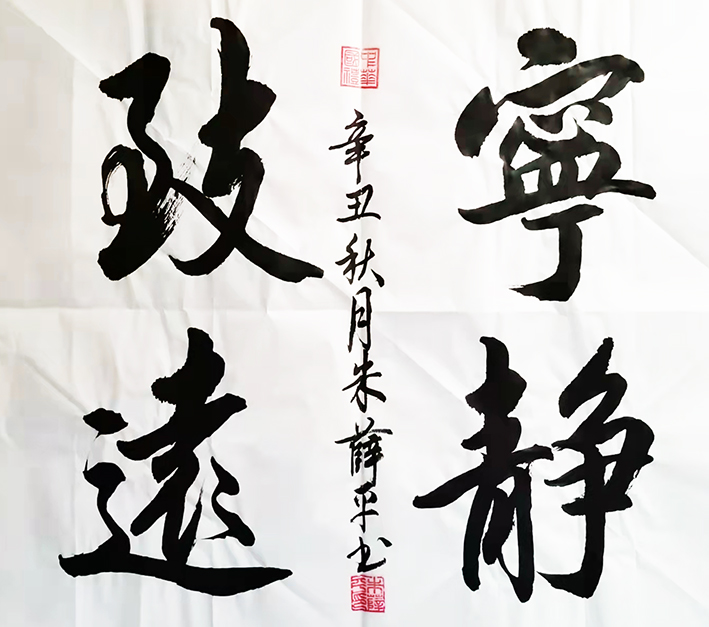 寧静
致遠
辛丑秋月朱薛平书